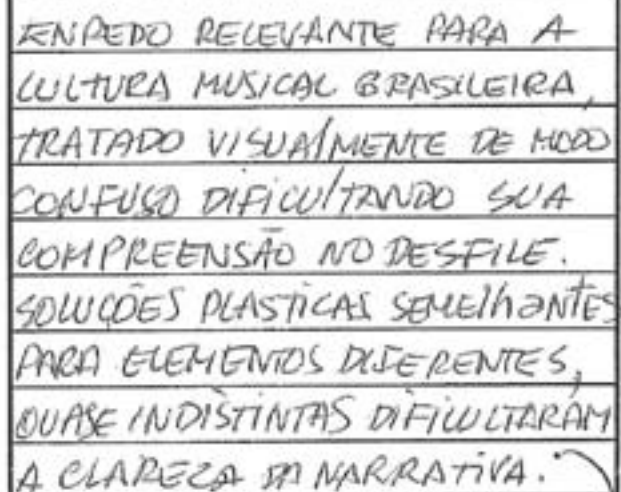 ENREDO RELEVANTE PARA A
CULTURA MUSICAL BRASILEIRA,
TRATADO VISUALMENTE DE MODO
CONFUSO DIFICULTANDO SUA
COMPREENSÃO NO DESFILE.
SOLUÇÕES PLASTICAS SEMELHANTES
PARA ELEMENTOS DIFERENTES,
QUASE INDISTINTAS DIFICULTARAM
A CLAREZA DA NARRATIVA.